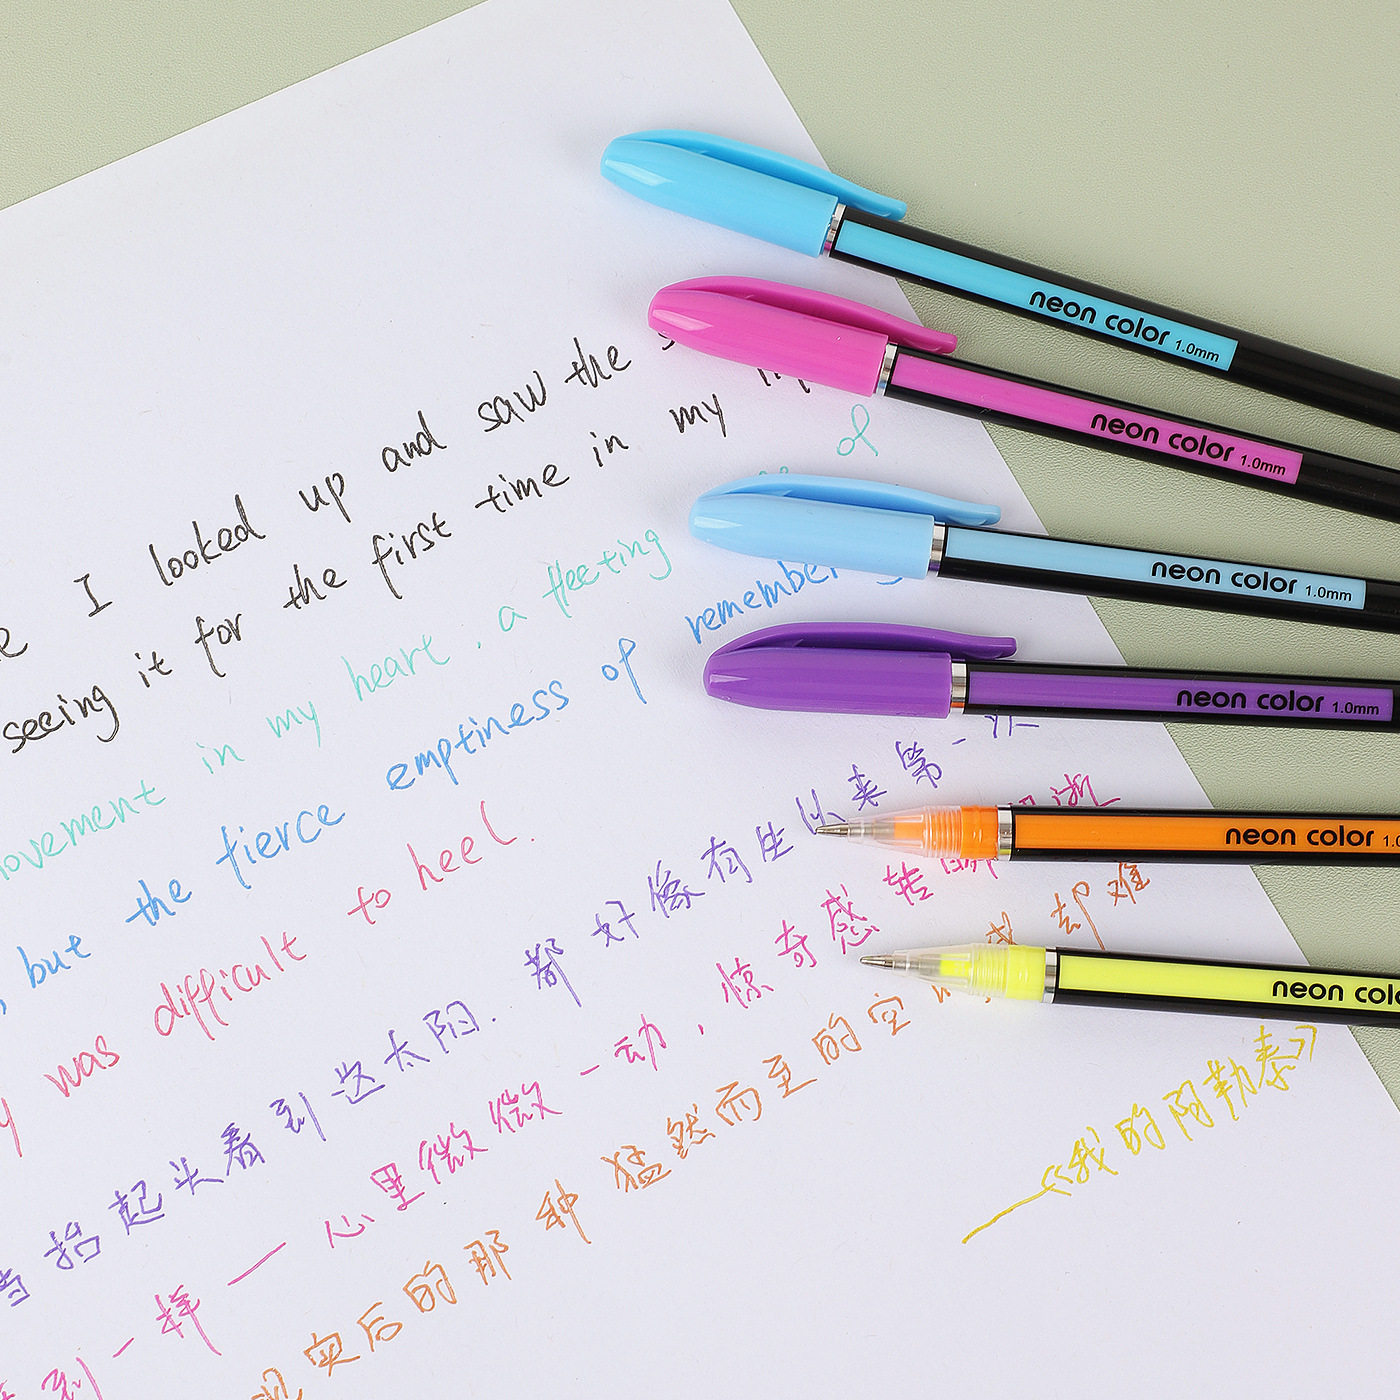 I looked up and saw the
seeing it for the first time in my
movement in my heart. a fleeting of
, but the fierce emptiness of remember
was difficult to heel.
当抬起头看到这太阳. 都好像有生以来第一次
看到一样 — 心里微微一动, 惊奇感转瞬即逝
现实后的那种猛然而至的空 却难
—《我的阿勒泰》
neon color 1.0mm
neon color 1.0mm
neon color 1.0mm
neon color 1.0mm
neon color 1.0
neon colo